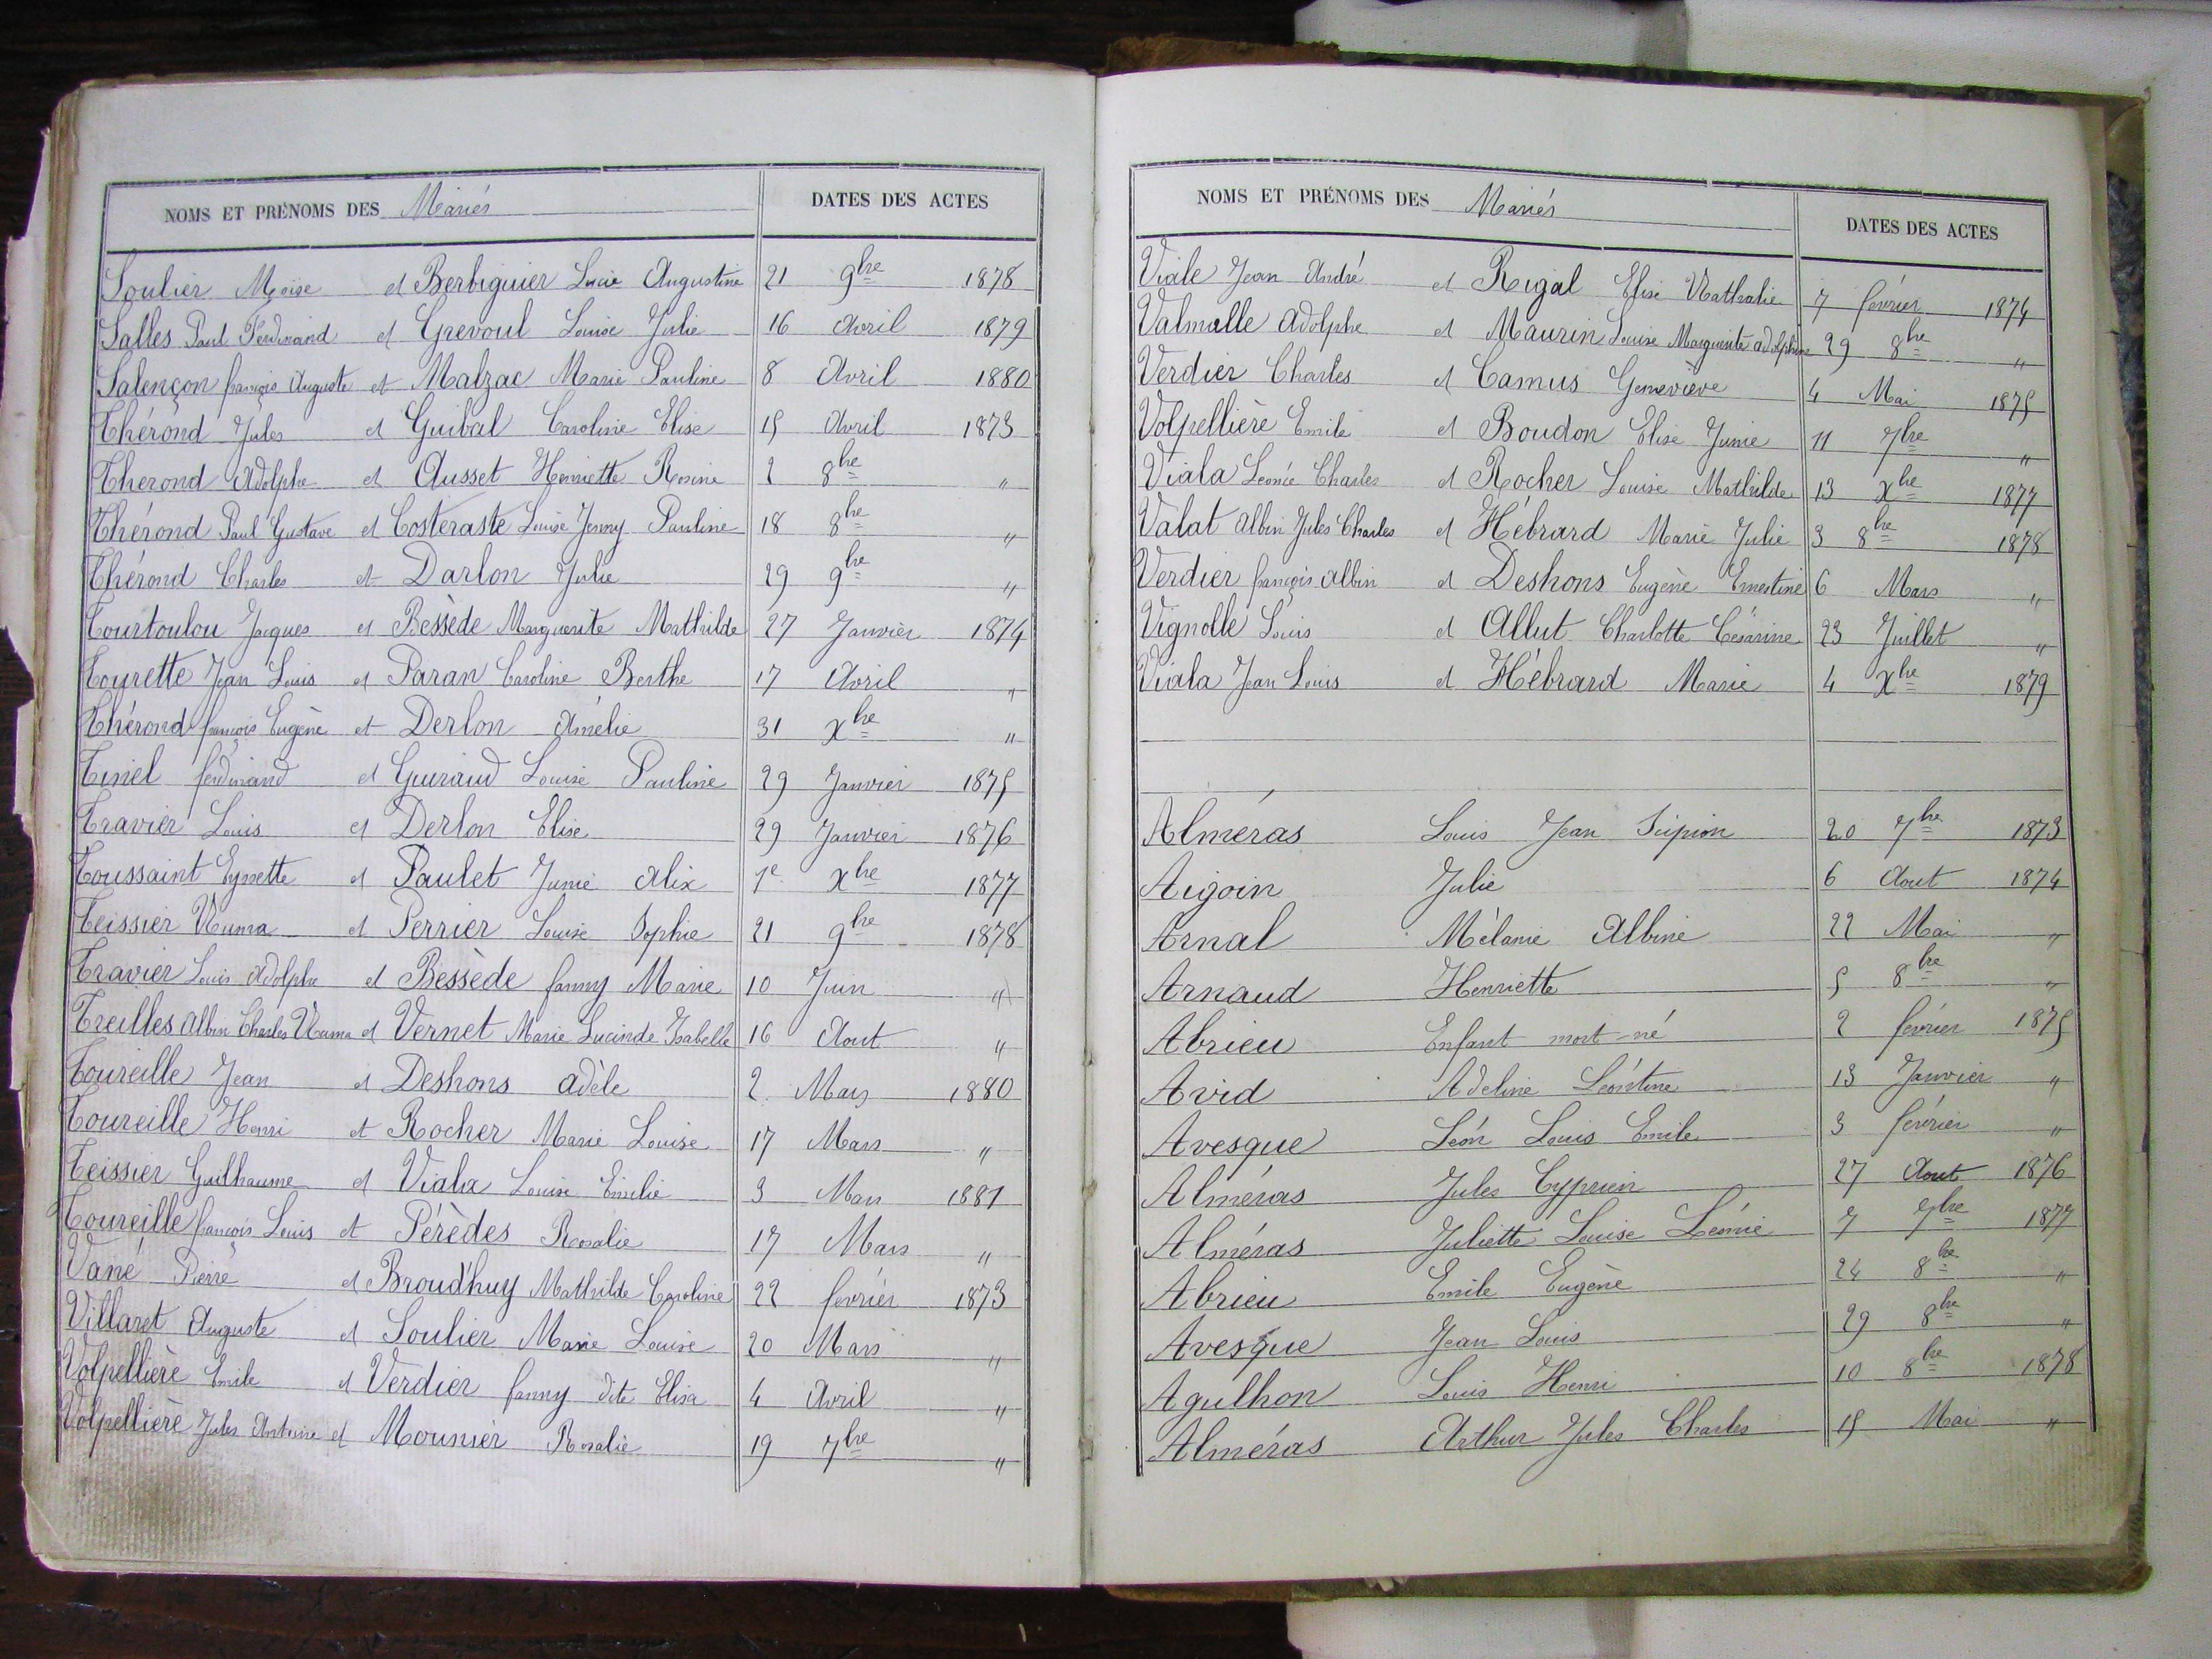 NOMS ET PRÉNOMS DES Mariés DATES DES ACTES
Soulier Moïse et Berbiguier Lucie Augustine 21 9bre 1878
Salles Paul Ferdinand et Grevoul Louise Julie 16 Avril 1879
Salençon françois Auguste et Malzac Marie Pauline 8 Avril 1880
Thérond Jules et Guibal Caroline Elise 15 Avril 1873
Thérond Adolphe et Ausset Henriette Rosine 2 8bre "
Thérond Paul Gustave et Costeraste Louise Jenny Pauline 18 8bre "
Thérond Charles et Darlon Julie 29 9bre "
Tourtoulou Jacques et Bessède Marguerite Mathilde 27 Janvier 1874
Tourette Jean Louis et Paran Caroline Berthe 17 Avril "
Thérond françois Eugène et Derlon Amélie 31 Xbre "
Tiniel ferdinand et Guiraud Louise Pauline 29 Janvier 1875
Travier Louis et Derlon Elise 29 Janvier 1876
Toussaint Eynette et Paulet Junie Alix 1e Xbre 1877
Teissier Numa et Perrier Louise Sophie 21 9bre 1878
Travier Louis Adolphe et Bessède fanny Marie 10 Juin "
Treilles Albin Charles Numa et Vernet Marie Lucinde Isabelle 16 Aout "
Toureille Jean et Deshons adèle 2 Mars 1880
Toureille Henri et Rocher Marie Louise 17 Mars "
Teissier Guilhaume et Viala Louise Emilie 3 Mars 1881
Toureille françois Louis et Pérèdes Rosalie 17 Mars "
Vané Pierre et Broud'huy Mathilde Caroline 22 fevrier 1873
Villaret Auguste et Soulier Marie Louise 20 Mars "
Volpellière Emile et Verdier fanny dite Elisa 4 Avril "
Volpellière Jules Antoine et Mounier Rosalie 19 7bre "
NOMS ET PRÉNOMS DES Mariés DATES DES ACTES
Viale Jean André et Rigal Elise Nathalie 7 février 1874
Valmalle adolphe et Maurin Louise Marguerite adolphine 29 8bre "
Verdier Charles et Camus Geneviève 4 Mai 1875
Volpellière Emile et Boudon Elise Junie 11 7bre "
Viala Léonce Charles et Rocher Louise Mathilde 13 Xbre 1877
Valat albin Jules Charles et Hébrard Marie Julie 3 8bre 1878
Verdier françois albin et Deshons Eugène Ernestine 6 Mars "
Vignolle Louis et Allut Charlotte Césarine 23 Juillet "
Viala Jean Louis et Hébrard Marie 4 Xbre 1879
Alméras Louis Jean Scipion 20 7bre 1873
Aigoin Julie 6 Aout 1874
Arnal Mélanie Albine 22 Mai "
Arnaud Henriette 5 8bre "
Abrieu Enfant mort-né 2 février 1875
Avid Adeline Léontine 13 Janvier "
Avesque Léon Louis Emile 3 février "
Alméras Jules Cyprien 27 Aout 1876
Alméras Juliette Louise Léonie 7 7bre 1877
Abrieu Emile Eugène 24 8bre "
Avesque Jean Louis 29 8bre "
Agulhon Louis Henri 10 8bre 1878
Alméras Arthur Jules Charles 15 Mai "